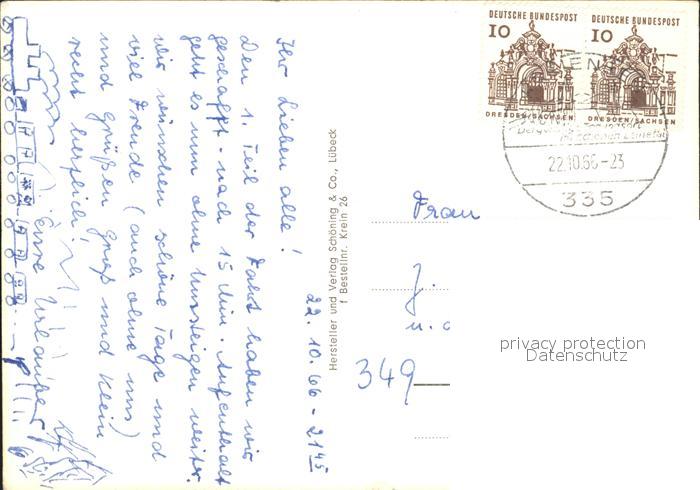 22.10.66 - 21⁴⁵
Ihr Lieben alle!
Den 1. Teil der Fahrt haben wir
geschafft - nach 15 Min. Aufenthalt
geht es nun ohne Umsteigen weiter.
Wir wünschen schöne Tage und
viel Freude (auch ohne uns)
und grüßen Groß und Klein
recht herzlich,
Eure Urlauber
Hersteller und Verlag Schöning & Co., Lübeck
f Bestellnr. Krein 26
DEUTSCHE BUNDESPOST
10
DRESDEN/SACHSEN
DEUTSCHE BUNDESPOST
10
DRESDEN/SACHSEN
22.10.66-23
335
Frau
J.
u.
349
privacy protection
Datenschutz